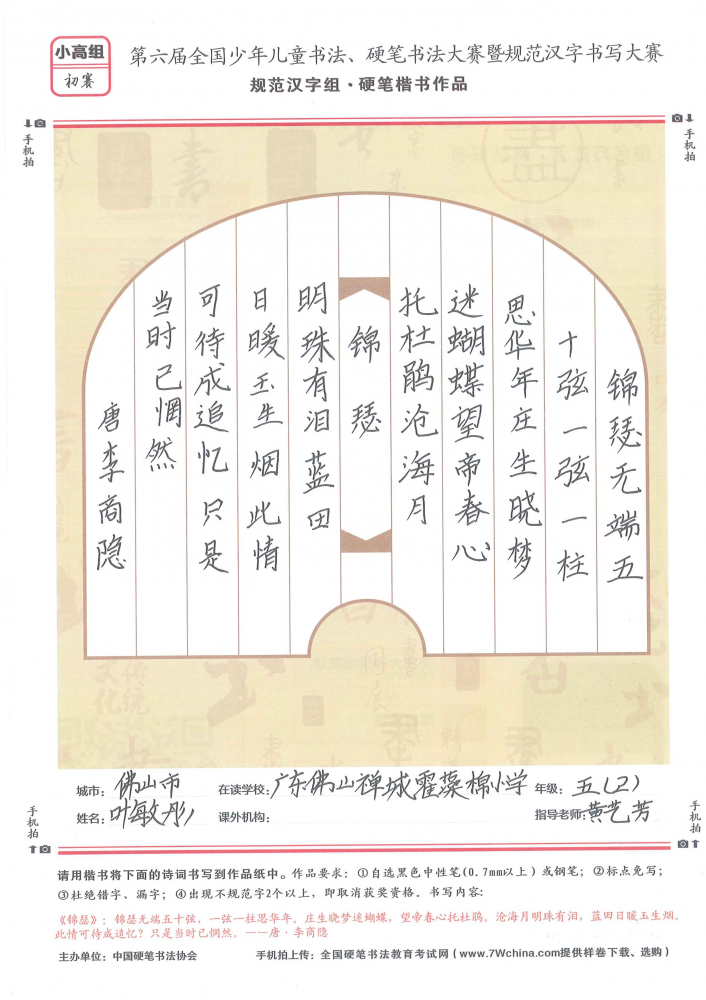 小高组
初赛
第六届全国少年儿童书法、硬笔书法大赛暨规范汉字书写大赛
规范汉字组·硬笔楷书作品
手机拍
手机拍
锦瑟无端五
十弦一弦一柱
思华年庄生晓梦
迷蝴蝶望帝春心
托杜鹃沧海月
锦瑟
明珠有泪蓝田
日暖玉生烟此情
可待成追忆只是
当时已惘然
唐李商隐
城市：佛山市 在读学校：广东佛山禅城霍藻棉小学 年级：五(2)
姓名：叶敏彤 课外机构： 指导老师：黄艺芳
手机拍
手机拍
请用楷书将下面的诗词书写到作品纸中。作品要求：①自选黑色中性笔(0.7mm以上）或钢笔；②标点免写；
③杜绝错字、漏字；④出现不规范字2个以上，即取消获奖资格。书写内容：
《锦瑟》：锦瑟无端五十弦，一弦一柱思华年。庄生晓梦迷蝴蝶，望帝春心托杜鹃。沧海月明珠有泪，蓝田日暖玉生烟。
此情可待成追忆？只是当时已惘然。——唐·李商隐
主办单位：中国硬笔书法协会 手机拍上传：全国硬笔书法教育考试网（www.7Wchina.com提供样卷下载、选购）